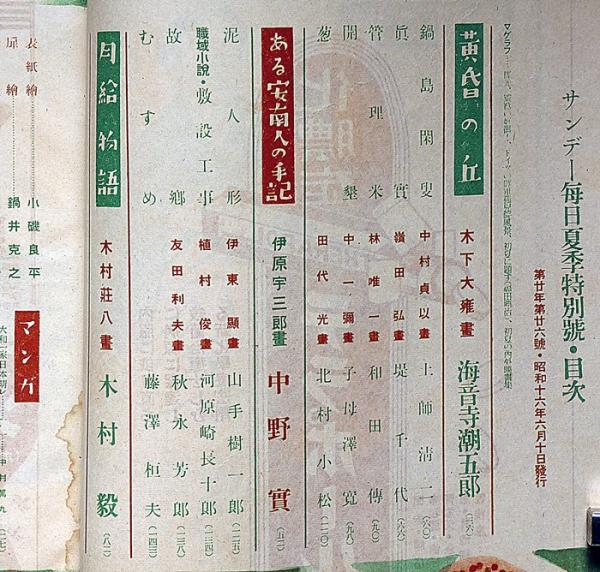 サンデー毎日夏季特別號・目次
第廿年第廿六號・昭和十六年六月十日發行
黄昏の丘 木下大雍畫 海音寺潮五郎(三六)
鍋島閑叟 中村貞以畫 土師清二(六〇)
眞實 嶺田弘畫 堤千代(六六)
管理米 林唯一畫 和田傳(九〇)
開墾 中一彌畫 子母澤寛(九八)
葱 田代光畫 北村小松(一一〇)
ある安南人の手記 伊原宇三郎畫 中野實(五二)
泥人形 伊東顯畫 山手樹一郎(一二五)
職域小說・敷設工事 植村俊畫 河原崎長十郎(一三四)
故鄉 友田利夫畫 秋永芳郎(一三八)
むすめ 藤澤桓夫(一四三)
月給物語 木村莊八畫 木村毅(八二)
表紙繪 小磯良平
扉繪 鍋井克之
マンガ